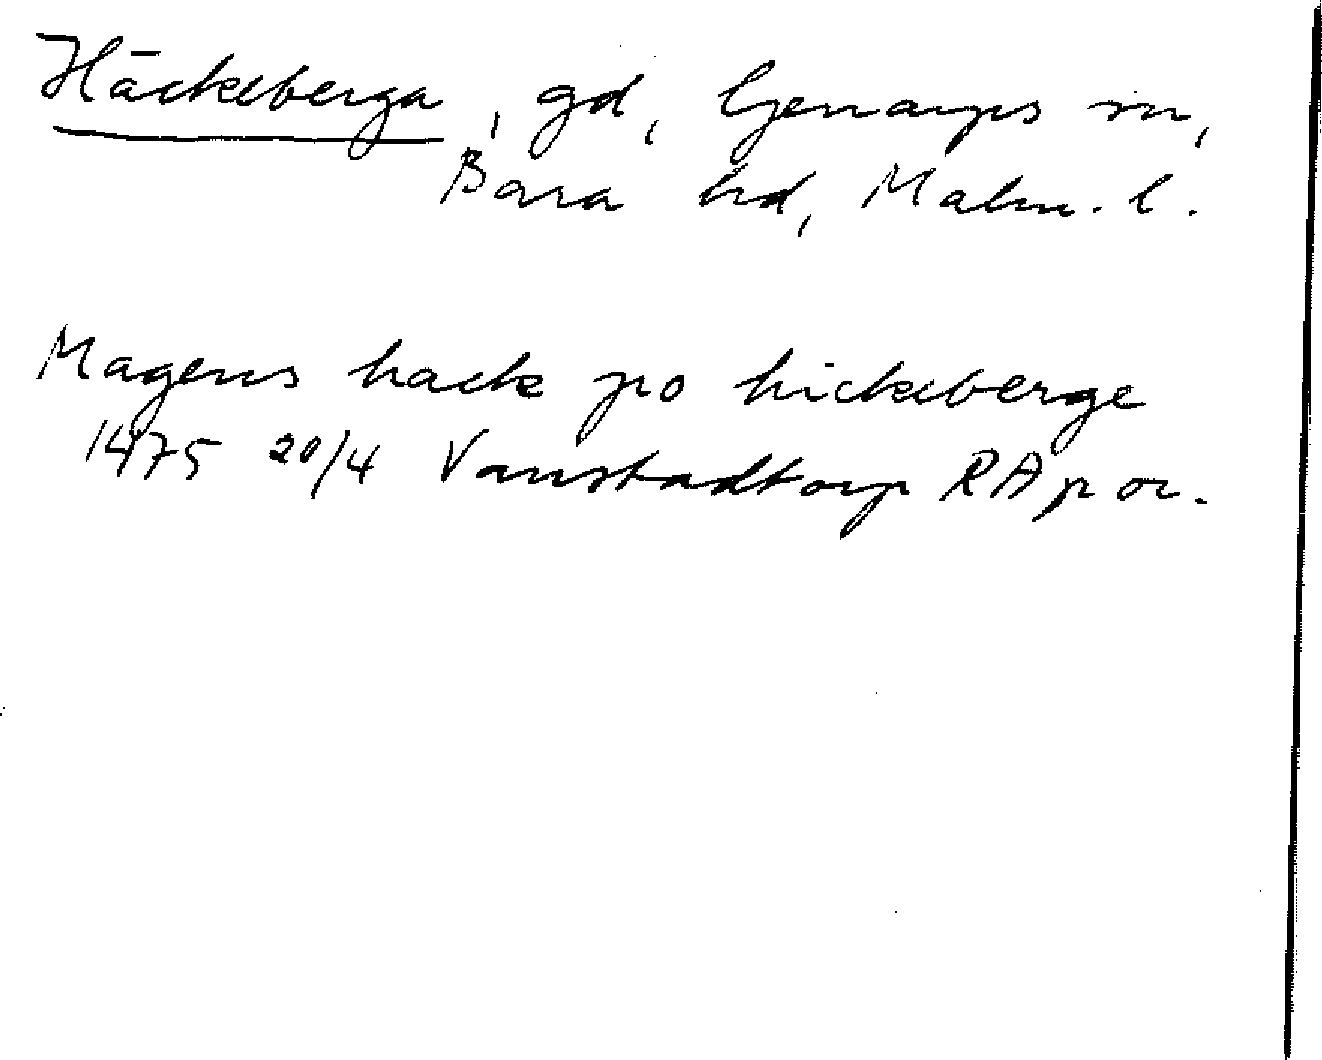 Häckeberga, gd, Genarps sn,
Bara hd, Malm. l.
Magens hack po hickeberge
1475 20/4 Vanstadtorp RA p or.